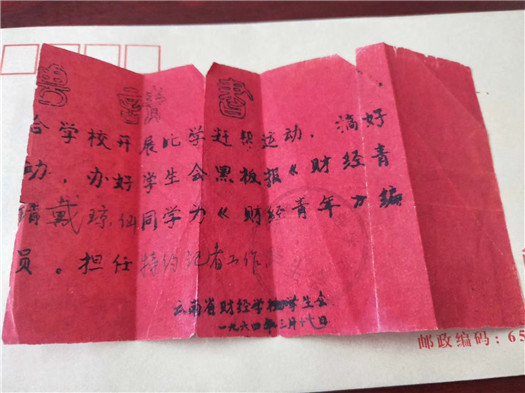 合学校开展比学赶帮运动，搞好
动，办好学生会黑板报《财经青
请戴琼仙同学为《财经青年》编
员。担任特约记者工作
云南省财经学校学生会
一九六四年三月 日
邮政编码：65